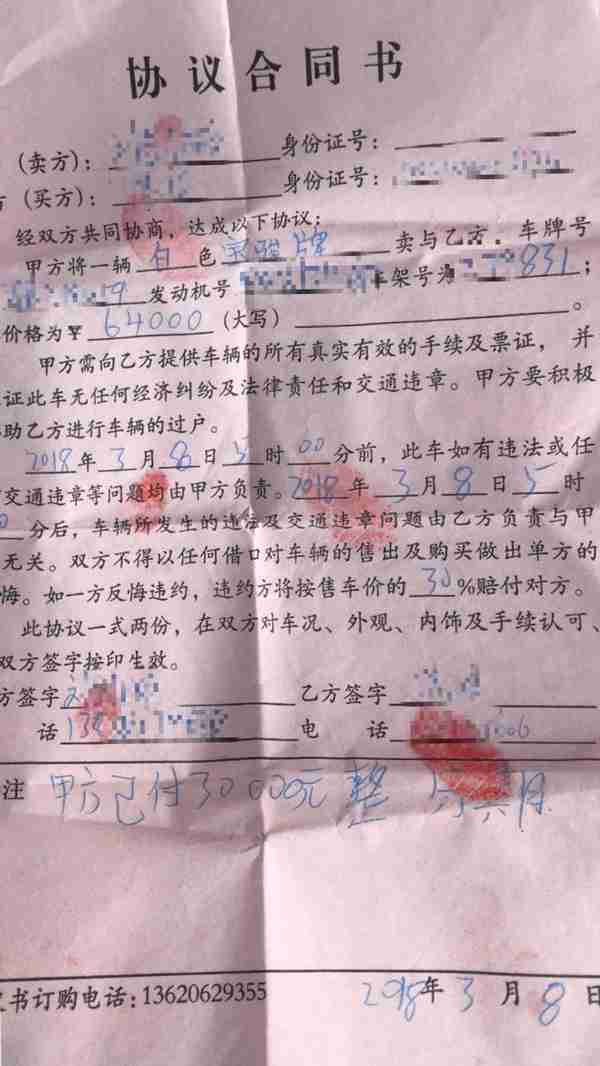 协议合同书
（卖方）： 身份证号：
（买方）： 身份证号：
经双方共同协商，达成以下协议：
甲方将一辆 白 色 牌 卖与乙方，车牌号
19 发动机号 车架号为 831；
价格为￥ 64000 （大写） 。
甲方需向乙方提供车辆的所有真实有效的手续及票证， 并
证此车无任何经济纠纷及法律责任和交通违章。甲方要积极
助乙方进行车辆的过户。
2018 年 3 月 8 日 5 时 00 分前，此车如有违法或任
交通违章等问题均由甲方负责。2018 年 3 月 8 日 5 时
分后，车辆所发生的违法及交通违章问题由乙方负责与甲
无关。双方不得以任何借口对车辆的售出及购买做出单方的
悔。如一方反悔违约，违约方将按售车价的 30 %赔付对方。
此协议一式两份，在双方对车况、外观、内饰及手续认可、
双方签字按印生效。
方签字 乙方签字
话 13 电 话 006
注 甲方已付30000元 整
书订购电话：13620629355 2018年 3 月 8 日